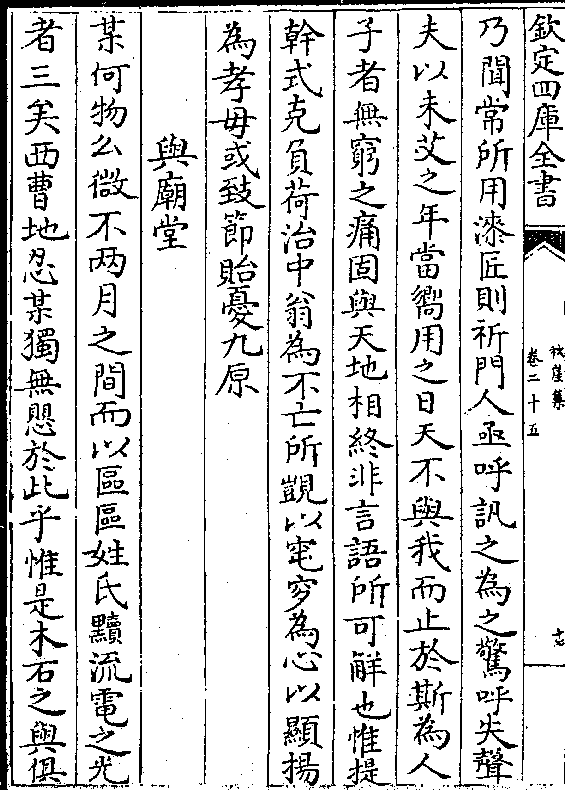 欽定四庫全書
秋崖集
卷二十五
十七
乃聞常所用漆匠則祈門人亟呼訊之為之驚呼失聲
夫以未艾之年當嚮用之日天不與我而止於斯為人
子者無窮之痛固與天地相終非言語所可觧也惟提
幹式克負荷治中翁為不亡所覬以窀穸為心以顯揚
為孝毋或致節貽憂九原
與廟堂
某何物么微不两月之間而以區區姓氏黷流電之光
者三矣西曹地忍某獨無愳於此乎惟是木石之與俱